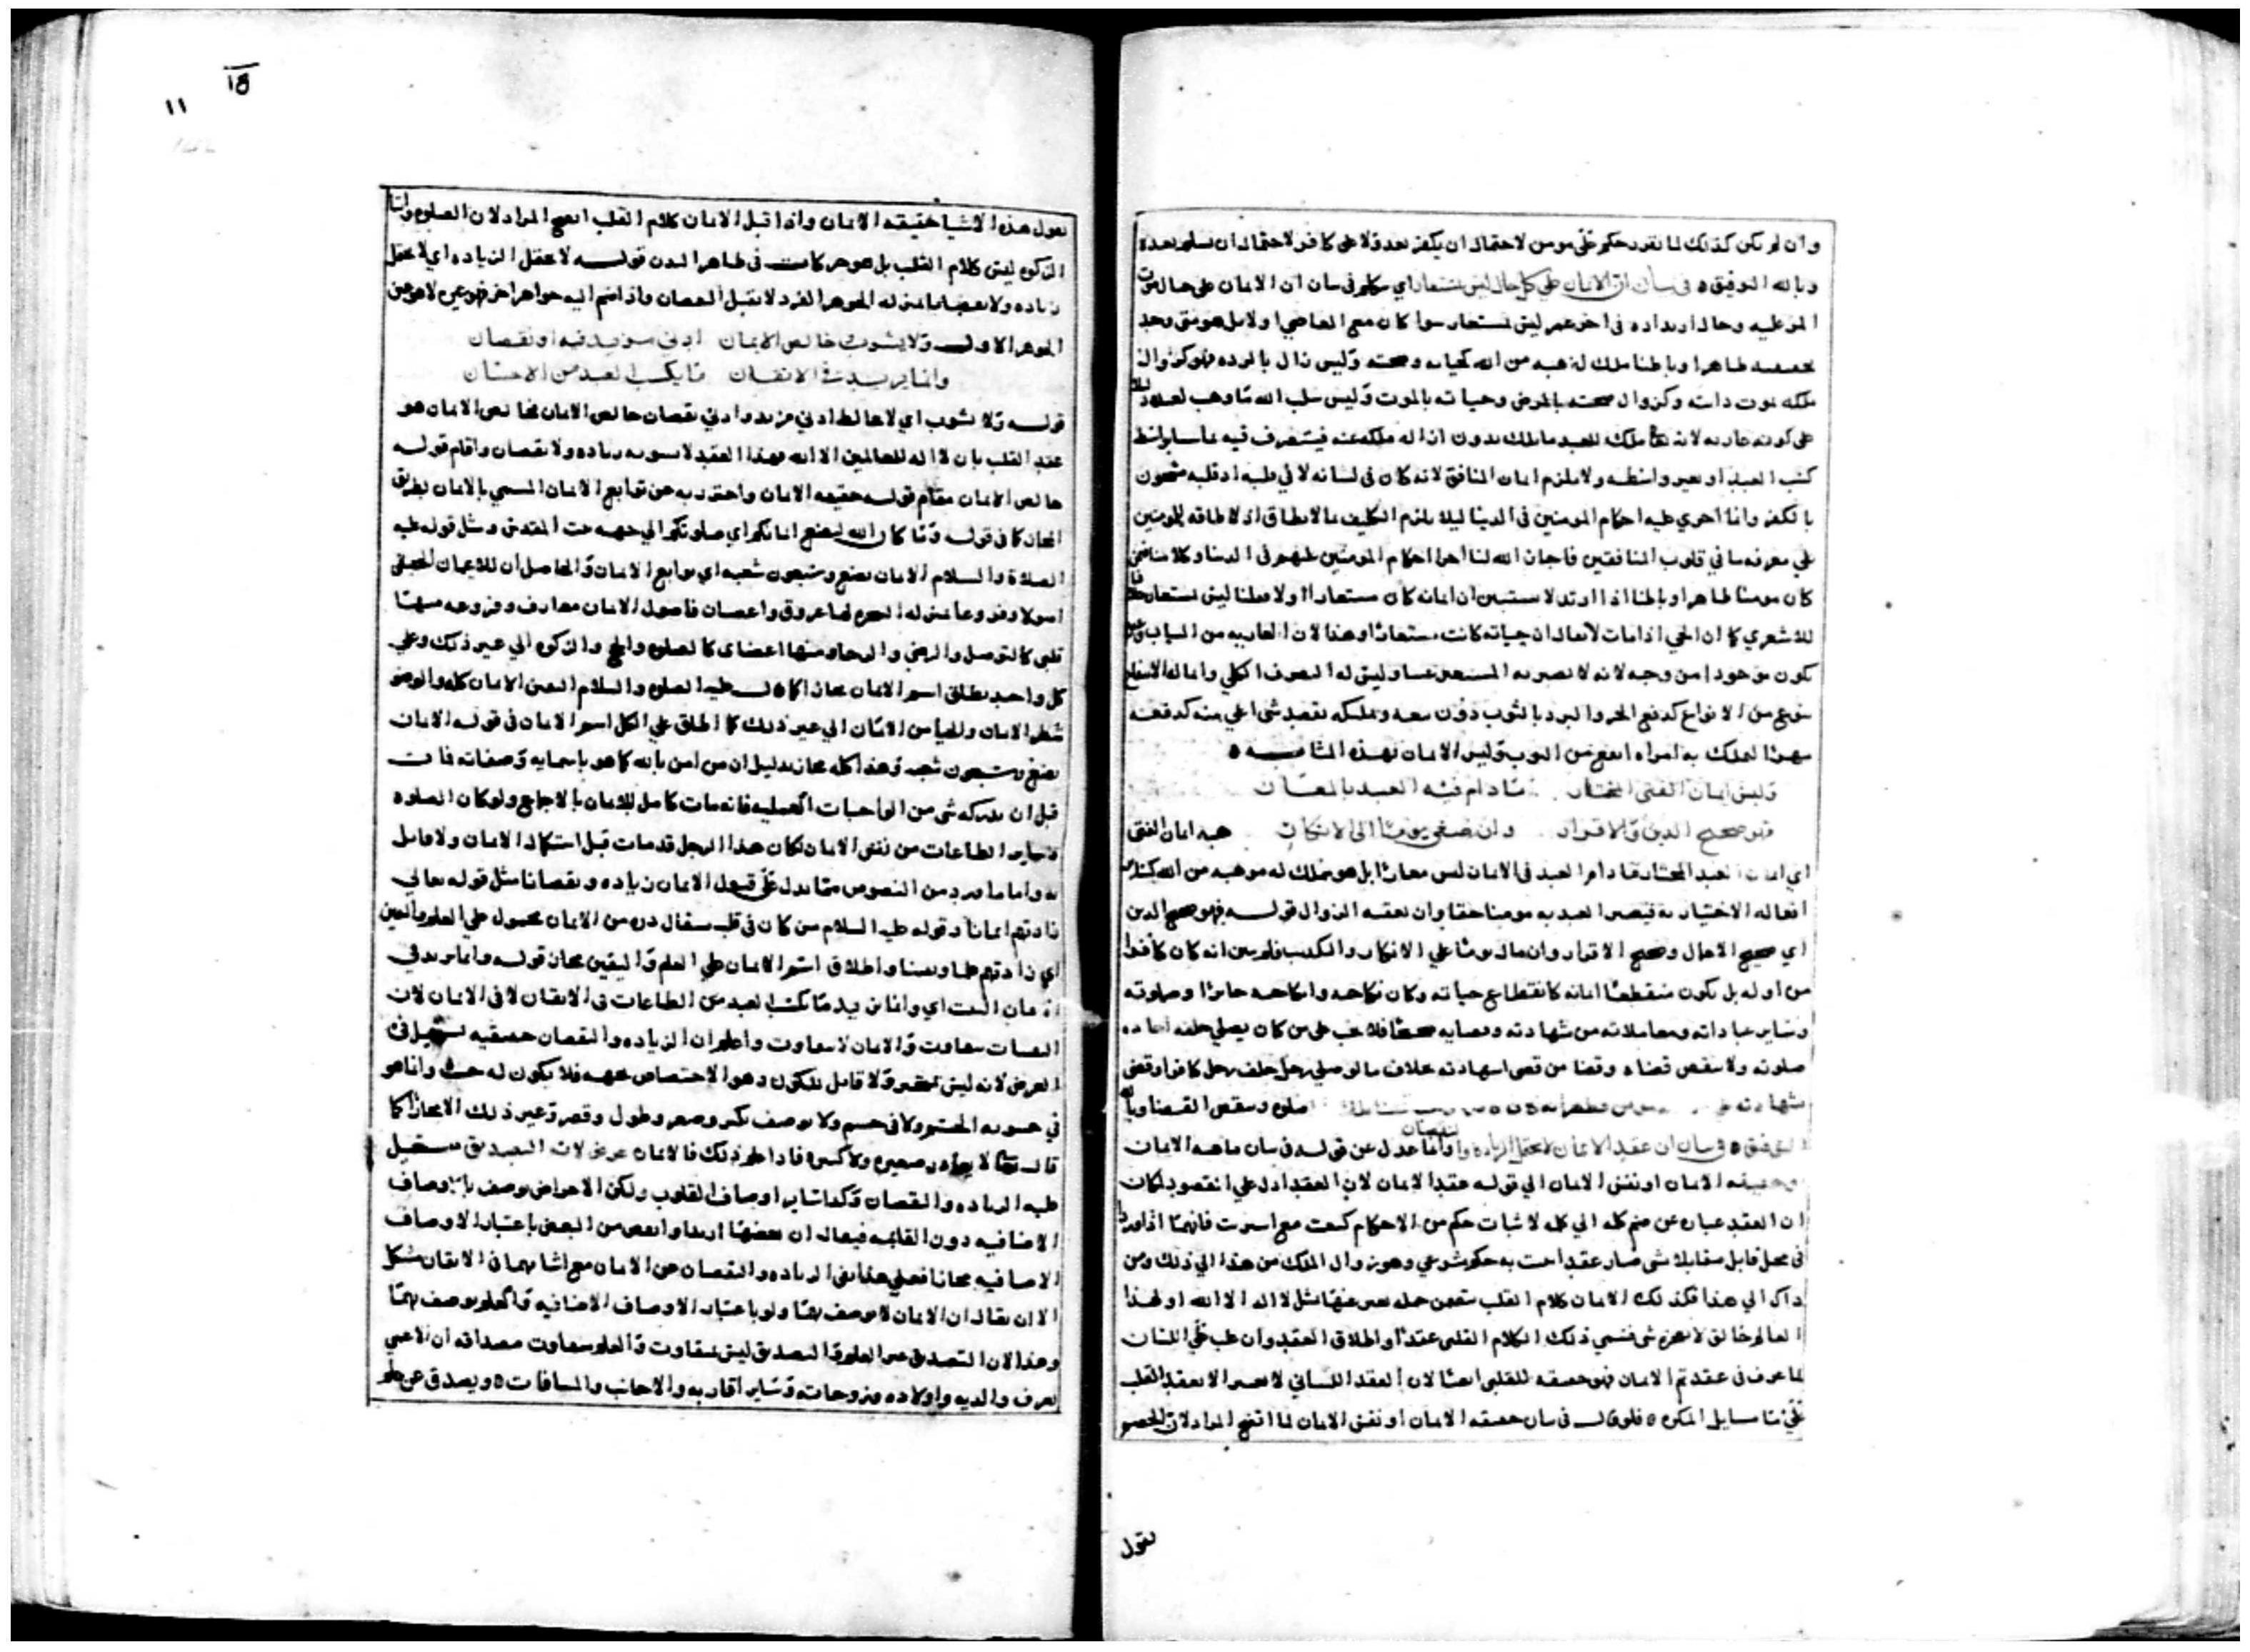 وان لم يكن كذلك لما نقدر حكم على مومن لاحتمال ان يكفر بعده ولا على كافر لاحتمال ان يسلم بعده
وبالله التوفيق في بيان ان الايمان على كل حال ليس بمستعار اي كلام في بيان ان الايمان على حال
المرء عليه وحال ارتداده في اخر عمره ليس بمستعار سوا كان مع المعاصي اولا بل هو متى وجد
بحقيقته ظاهرا وباطنا ملك له هبه من الله كحياته وصحته وليس زال بالرده فهو كزوال
ملكه بموت دابته وكزوال صحته بالمرض وحياته بالموت وليس سلب الله ما وهب لعبده
على كونه عاريه لانه تعالى ملك للعبد ما ملك بدون ازاله ملكه عنه فيتصرف فيه بما شا بواسطه
كسب العبد او بغير واسطه ولا يلزم ايمان المنافق لانه كان في لسانه لا في قلبه اذ قلبه مشحون
بالكفر وانما اجري عليه احكام المومنين في الدنيا ليلا يلزم التكليف بما لا يطاق اذ لا طاقه للمومنين
على معرفه ما في قلوب المنافقين فاجاز الله لنا اجرا احكام المومنين عليهم في الدنيا وكلامنا فيمن
كان مومنا ظاهرا وباطنا اذا ارتد لا يستبين ان ايمانه كان مستعارا اولا فعلنا ليس بمستعار خلافا
للاشعري كما ان الحي اذا مات لا يقال ان حياته كانت مستعاره وهذا لان العاريه من الثياب وغيره
يكون موجودا من وجه لانه لا يصير به المستعير غنيا وليس له التصرف الكلي وانما له الانتفاع
بنوع من الانواع كدفع الحر والبرد بالثوب دون بيعه وتمليكه بقصد شي اعلى منه كدفعه
مهرا لتملك به امراه انفع من الثوب وليس الايمان بهذه المثابه
وليس ايمان الفتى المختار ما دام فيه العبد بالمعار
فهو صحيح الدين والاقرار وان صغى يوما الى الانكار هبه ايمان الفتى
اي ايمان العبد المختار ما دام العبد في الايمان ليس معارا بل هو تملك له موهبه من الله كساير
افعاله الاختياريه فيصير العبد به مومنا حقا وان تعقبه الزوال قوله فهو صحيح الدين
اي صحيح الاعمال وصحيح الاقرار وان مال يوما على الانكار والتكذيب فلم يبن انه كان كافرا
من اوله بل يكون منقطعا ايمانه كانقطاع حياته وكان نكاحه وانكاحه جايزا وصلوته
وساير عباداته ومعاملاته من شهادته وقضايه صحيحا فلا يجب على من كان يصلي خلفه اعاده
صلوته ولا ينقض قضاه وقضا من قضى بشهادته بخلاف ما لو صلى رجل خلف رجل كافر او قضى
بشهادته صلوته وينقض القضا وبالله
التوفيق في بيان ان عقد الايمان لا يحتمل الزياده والنقصان وانما عدل عن قوله في بيان ماهيه الايمان
وحقيقه الايمان او نفس الايمان الى قوله عقد الايمان لان العقد ادل على المقصود لمكان
ان العقد عباره عن ضم كلمه الى كلمه لاثبات حكم من الاحكام كبعت مع اشتريت فانهما اذا وردا
في محل قابل مقابلا شي صار عقدا يثبت به حكم شرعي وهو زوال الملك من هذا الى ذلك ومن
ذاك الى هذا فكذلك الايمان كلام القلب يتضمن جمله يعبر عنها مثل لا اله الا الله او لهذا
العالم خالق لا يعجزه شي فسمي ذلك الكلام القلبي عقدا واطلاق العقد وان غلب على اللسان
لما عرف في عقد ثم الايمان فهو حقيقه للقلبي ايضا لان العقد اللساني لا يعتبر الا بعقد القلب
على ما مسايل المكره فلو قال في بيان حقيقه الايمان او نفس الايمان لما اتضح المراد لان الخصم
يقول
18
11
يقول هذه الاشيا حقيقه الايمان واذا قيل الايمان كلام القلب اتضح المراد لان الصلوه وايتا
الزكوه ليس كلام القلب بل هو حركات في ظاهر البدن قوله لا يحتمل الزياده اي لا يحتمل
زياده ولا نقصانا بمنزله الجوهر الفرد لا يقبل النقصان واذا ضم اليه جواهر اخر فهو غيره لا هو عين
الجوهر الاول ولا يشوب خالص الايمان ادنى مزيد فيه او نقصان
وانما يزيد في الاتقان ما يكسب العبد من الاحسان
قوله ولا يشوب اي لا يخالط ادنى مزيد وادنى نقصان خالص الايمان فخالص الايمان هو
عقد القلب بان لا اله للعالمين الا الله فهذا العقد لا يشوبه زياده ولا نقصان واقام قوله
خالص الايمان مقام قوله حقيقه الايمان واحترز به عن توابع الايمان المسمى بالايمان بطريق
المجاز كما في قوله وما كان الله ليضيع ايمانكم اي صلوتكم الى جهه بيت المقدس ومثل قوله عليه
الصلاة والسلام الايمان بضع وسبعون شعبه اي توابع الايمان والحاصل ان للايمان الحقيقي
اصولا وفروعا بمنزله الشجره لها عروق واغصان فاصول الايمان معارف وفروعه منها
قلبي كالتوكل والرضى والرجا ومنها اعضاي كالصلوه والحج والزكوه الى غير ذلك وعلى
كل واحد يطلق اسم الايمان مجازا كما قال عليه الصلوه والسلام الصبر الايمان كله والوضو
شطر الايمان والحيا من الايمان الى غير ذلك كما اطلق على الكل اسم الايمان في قوله الايمان
بضع وسبعون شعبه وهذا كله مجاز بدليل ان من امن بالله كما هو باسمايه وصفاته فمات
قبل ان يدركه شي من الواجبات العمليه فانه مات كامل الايمان بالاجماع ولو كان الصلوه
وساير الطاعات من نفس الايمان لكان هذا الرجل قد مات قبل استكمال الايمان ولا قايل
به واما ما ورد من النصوص مما يدل على قبول الايمان زياده ونقصانا مثل قوله تعالى
زادتهم ايمانا وقوله عليه السلام من كان في قلبه مثقال ذره من الايمان محمول على العلم واليقين
اي زادتهم علما ويقينا واطلاق اسم الايمان على العلم واليقين مجاز قوله وانما يزيد في
الاتقان البيت اي وانما يزيد ما يكسب العبد من الطاعات في الاتقان لا في الايمان لان
اليقينيات يتفاوت والايمان لا يتفاوت واعلم ان الزياده والنقصان حقيقيه يستحيل في
العرض لانه ليس بمتحيز ولا قابل للكون وهو الاختصاص بجهه فلا يكون له حيث وانما هو
في حسوبه الجسم ولا في جسم ولا يوصف بكبر وصغر وطول وقصر وغير ذلك الا مجازا كما
قال تعالى لا يغادر صغيره ولا كبيره فاذا علم ذلك فالايمان عرض لان التصديق يستحيل
عليه الزياده والنقصان وكذا ساير اوصاف القلوب ولكن الاعراض يوصف بالاوصاف
الاضافيه دون القايمه فيقال ان بعضها ازيد وانقص من البعض باعتبار الاوصاف
الاضافيه مجازا فعلى هذا نفي الزياده والنقصان عن الايمان مع اثباتهما في الاتقان مشكل
الا ان يقال ان الايمان لا يوصف بهما ولو باعتبار الاوصاف الاضافيه والعلم يوصف بهما
وهذا لان التصديق غير العلم والتصديق ليس بمتفاوت والعلم متفاوت مصداقه ان الاعمى
يعرف والديه واولاده وزوجاته وساير اقاربه والاجانب والمسافات ويصدق عن علم